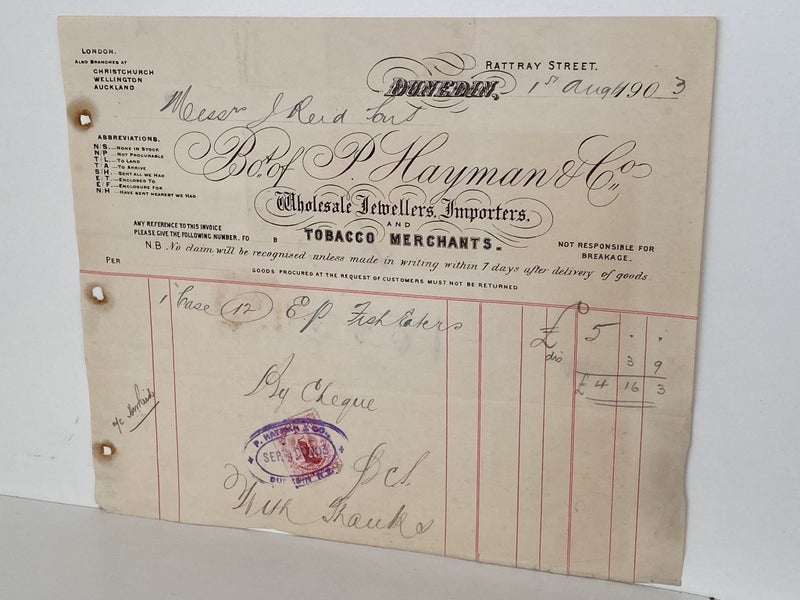 LONDON.
ALSO BRANCHES AT
CHRISTCHURCH
WELLINGTON
AUCKLAND
RATTRAY STREET.
DUNEDIN, 1st Aug 1903
Messrs J Reid
ABBREVIATIONS.
N S. - NONE IN STOCK
N P - NOT PROCURABLE
T L - TO LAND
T A - TO ARRIVE
S H - SENT ALL WE HAD
E T - ENCLOSED TO
E F - ENCLOSURE FOR
N H - HAVE SENT NEAREST WE HAD
Bot. of P. Hayman & Co.
Wholesale Jewellers, Importers,
AND
TOBACCO MERCHANTS.
ANY REFERENCE TO THIS INVOICE
PLEASE GIVE THE FOLLOWING NUMBER. FO B
NOT RESPONSIBLE FOR
BREAKAGE.
N.B. No claim will be recognised unless made in writing within 7 days after delivery of goods.
PER
GOODS PROCURED AT THE REQUEST OF CUSTOMERS MUST NOT BE RETURNED
1 Case 12 EP Fish Eaters £ 5 . .
dis 3 9
£ 4 16 3
By Cheque
P. HAYMAN & CO.
SEP
With Thanks